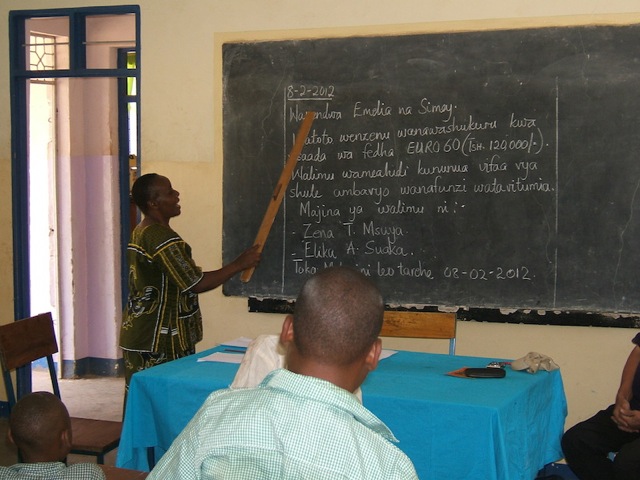 8-2-2012
Wapendwa Emelia na Simay.
Watoto wenzenu wanawashukuru kwa
msaada wa fedha EURO 60 (Tsh. 120,000/-).
Walimu wameahidi kununua vifaa vya
shule ambavyo wanafunzi watavitumia.
Majina ya walimu ni:-
- Zena T. Msuya.
- Eliku A. Suaka.
Toka leo tarehe 08-02-2012.